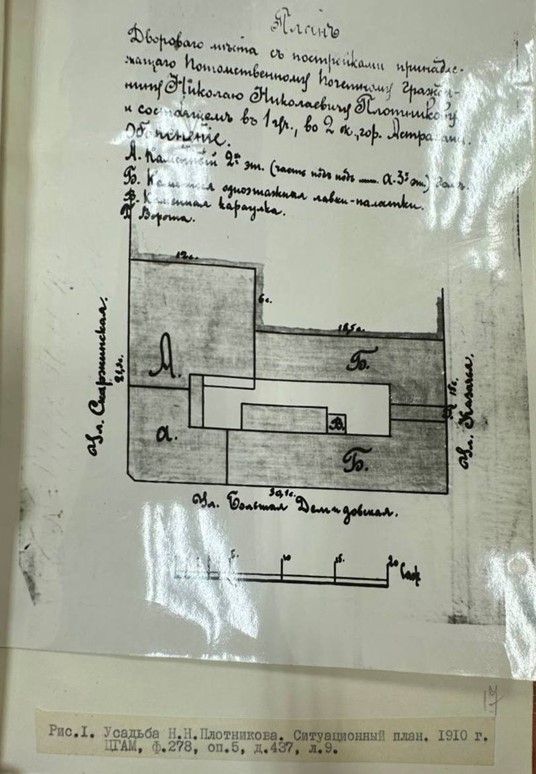 Планъ
Двороваго мѣста съ постройками принадле-
жащаго Потомственному Почетному Гражда-
нину Николаю Николаевичу Плотникову
и состоящемъ въ 1 уч., во 2 ок., гор. Астрахани.
А. Каменный 2хъ эт. (часть подъ а. 3хэт.)
Б. Каменныя одноэтажныя лавки-палатки.
В. Каменная караулка.
Ворота.
12с.
6с.
18,5с.
А.
Б.
Ул.
а.
В.
Б.
Ул. Казачья.
30,5с.
Ул. Большая Демидовская.
5
10
15
20 Саж
17
Рис.I. Усадьба Н.Н.Плотникова. Ситуационный план. 1910 г.
ЦГАМ, ф.278, оп.5, д.437, л.9.